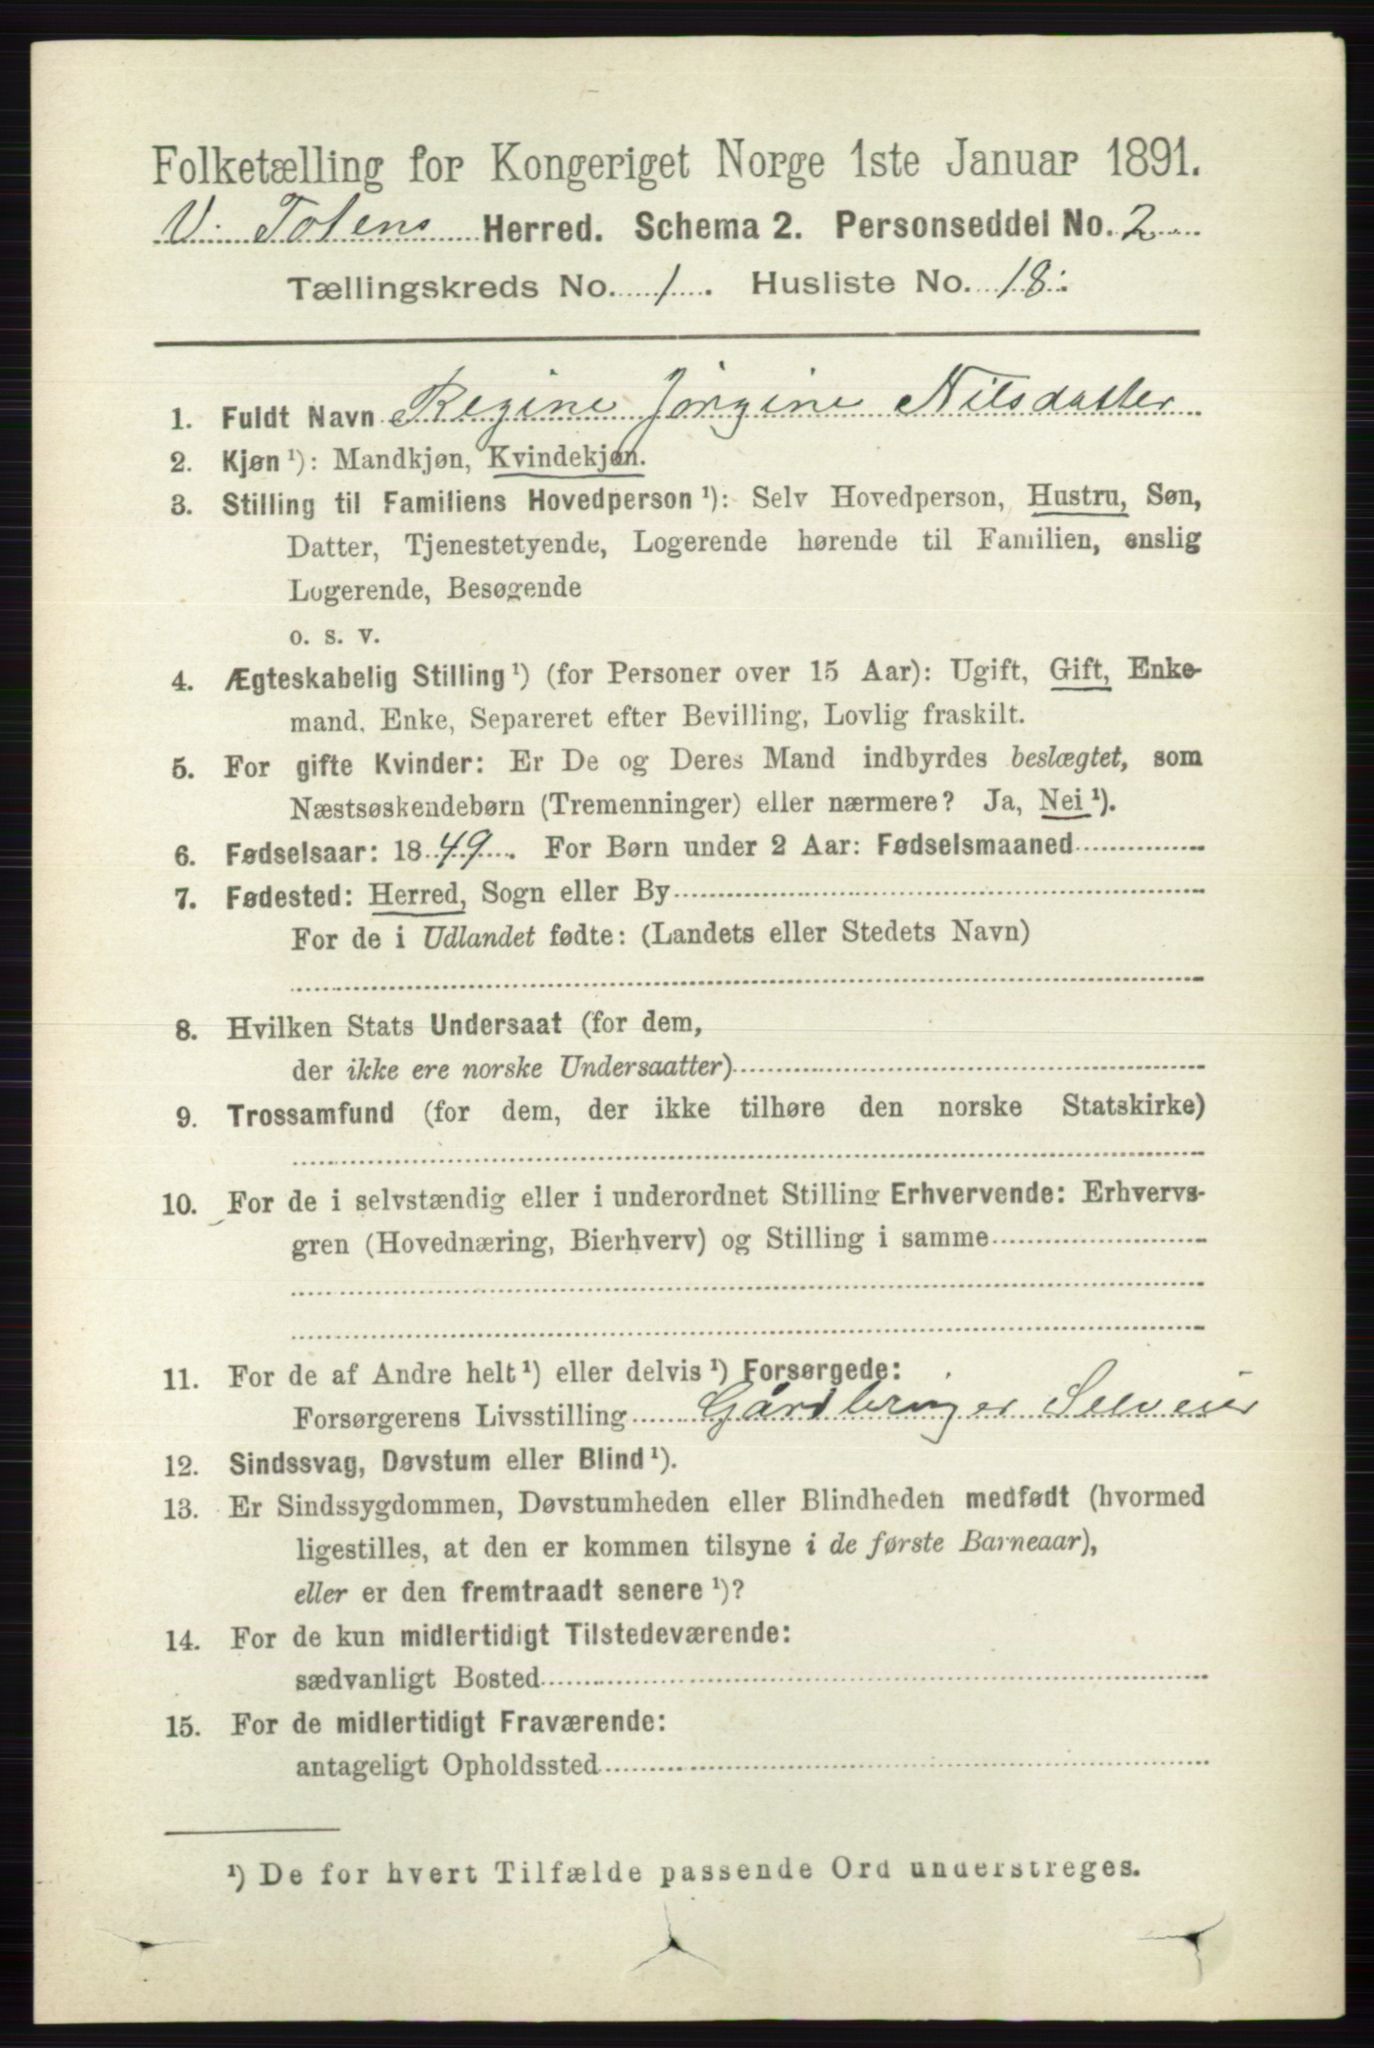 Folketælling for Kongeriget Norge 1ste Januar 1891.
V. Totens Herred. Schema 2. Personseddel No. 2
Tællingskreds No. 1. Husliste No. 18.
1. Fuldt Navn Regine Jörgine Nilsdatter
2. Kjøn ¹): Mandkjøn, Kvindekjøn.
3. Stilling til Familiens Hovedperson ¹): Selv Hovedperson, Hustru, Søn,
Datter, Tjenestetyende, Logerende hørende til Familien, enslig
Logerende, Besøgende
o. s. v.
4. Ægteskabelig Stilling ¹) (for Personer over 15 Aar): Ugift, Gift, Enke-
mand, Enke, Separeret efter Bevilling, Lovlig fraskilt.
5. For gifte Kvinder: Er De og Deres Mand indbyrdes beslægtet, som
Næstsøskendebørn (Tremenninger) eller nærmere? Ja, Nei ¹).
6. Fødselsaar: 1849. For Børn under 2 Aar: Fødselsmaaned
7. Fødested: Herred, Sogn eller By
For de i Udlandet fødte: (Landets eller Stedets Navn)
8. Hvilken Stats Undersaat (for dem,
der ikke ere norske Undersaatter)
9. Trossamfund (for dem, der ikke tilhøre den norske Statskirke)
10. For de i selvstændig eller i underordnet Stilling Erhvervende: Erhvervs-
gren (Hovednæring, Bierhverv) og Stilling i samme
11. For de af Andre helt ¹) eller delvis ¹) Forsørgede:
Forsørgerens Livsstilling Gårdbruger Selveier
12. Sindssvag, Døvstum eller Blind ¹).
13. Er Sindssygdommen, Døvstumheden eller Blindheden medfødt (hvormed
ligestilles, at den er kommen tilsyne i de første Barneaar),
eller er den fremtraadt senere ¹)?
14. For de kun midlertidigt Tilstedeværende:
sædvanligt Bosted
15. For de midlertidigt Fraværende:
antageligt Opholdssted
¹) De for hvert Tilfælde passende Ord understreges.